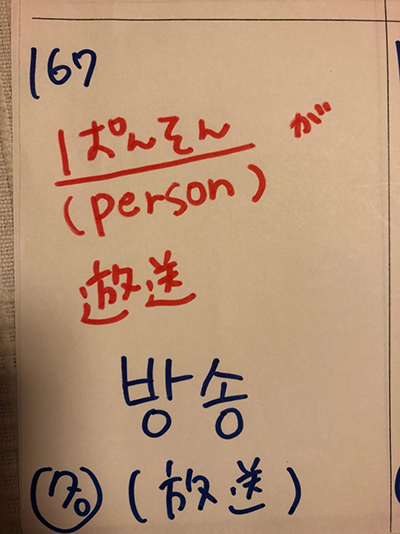 167
ぱんそん が
(person)
放送
방송
(放送)